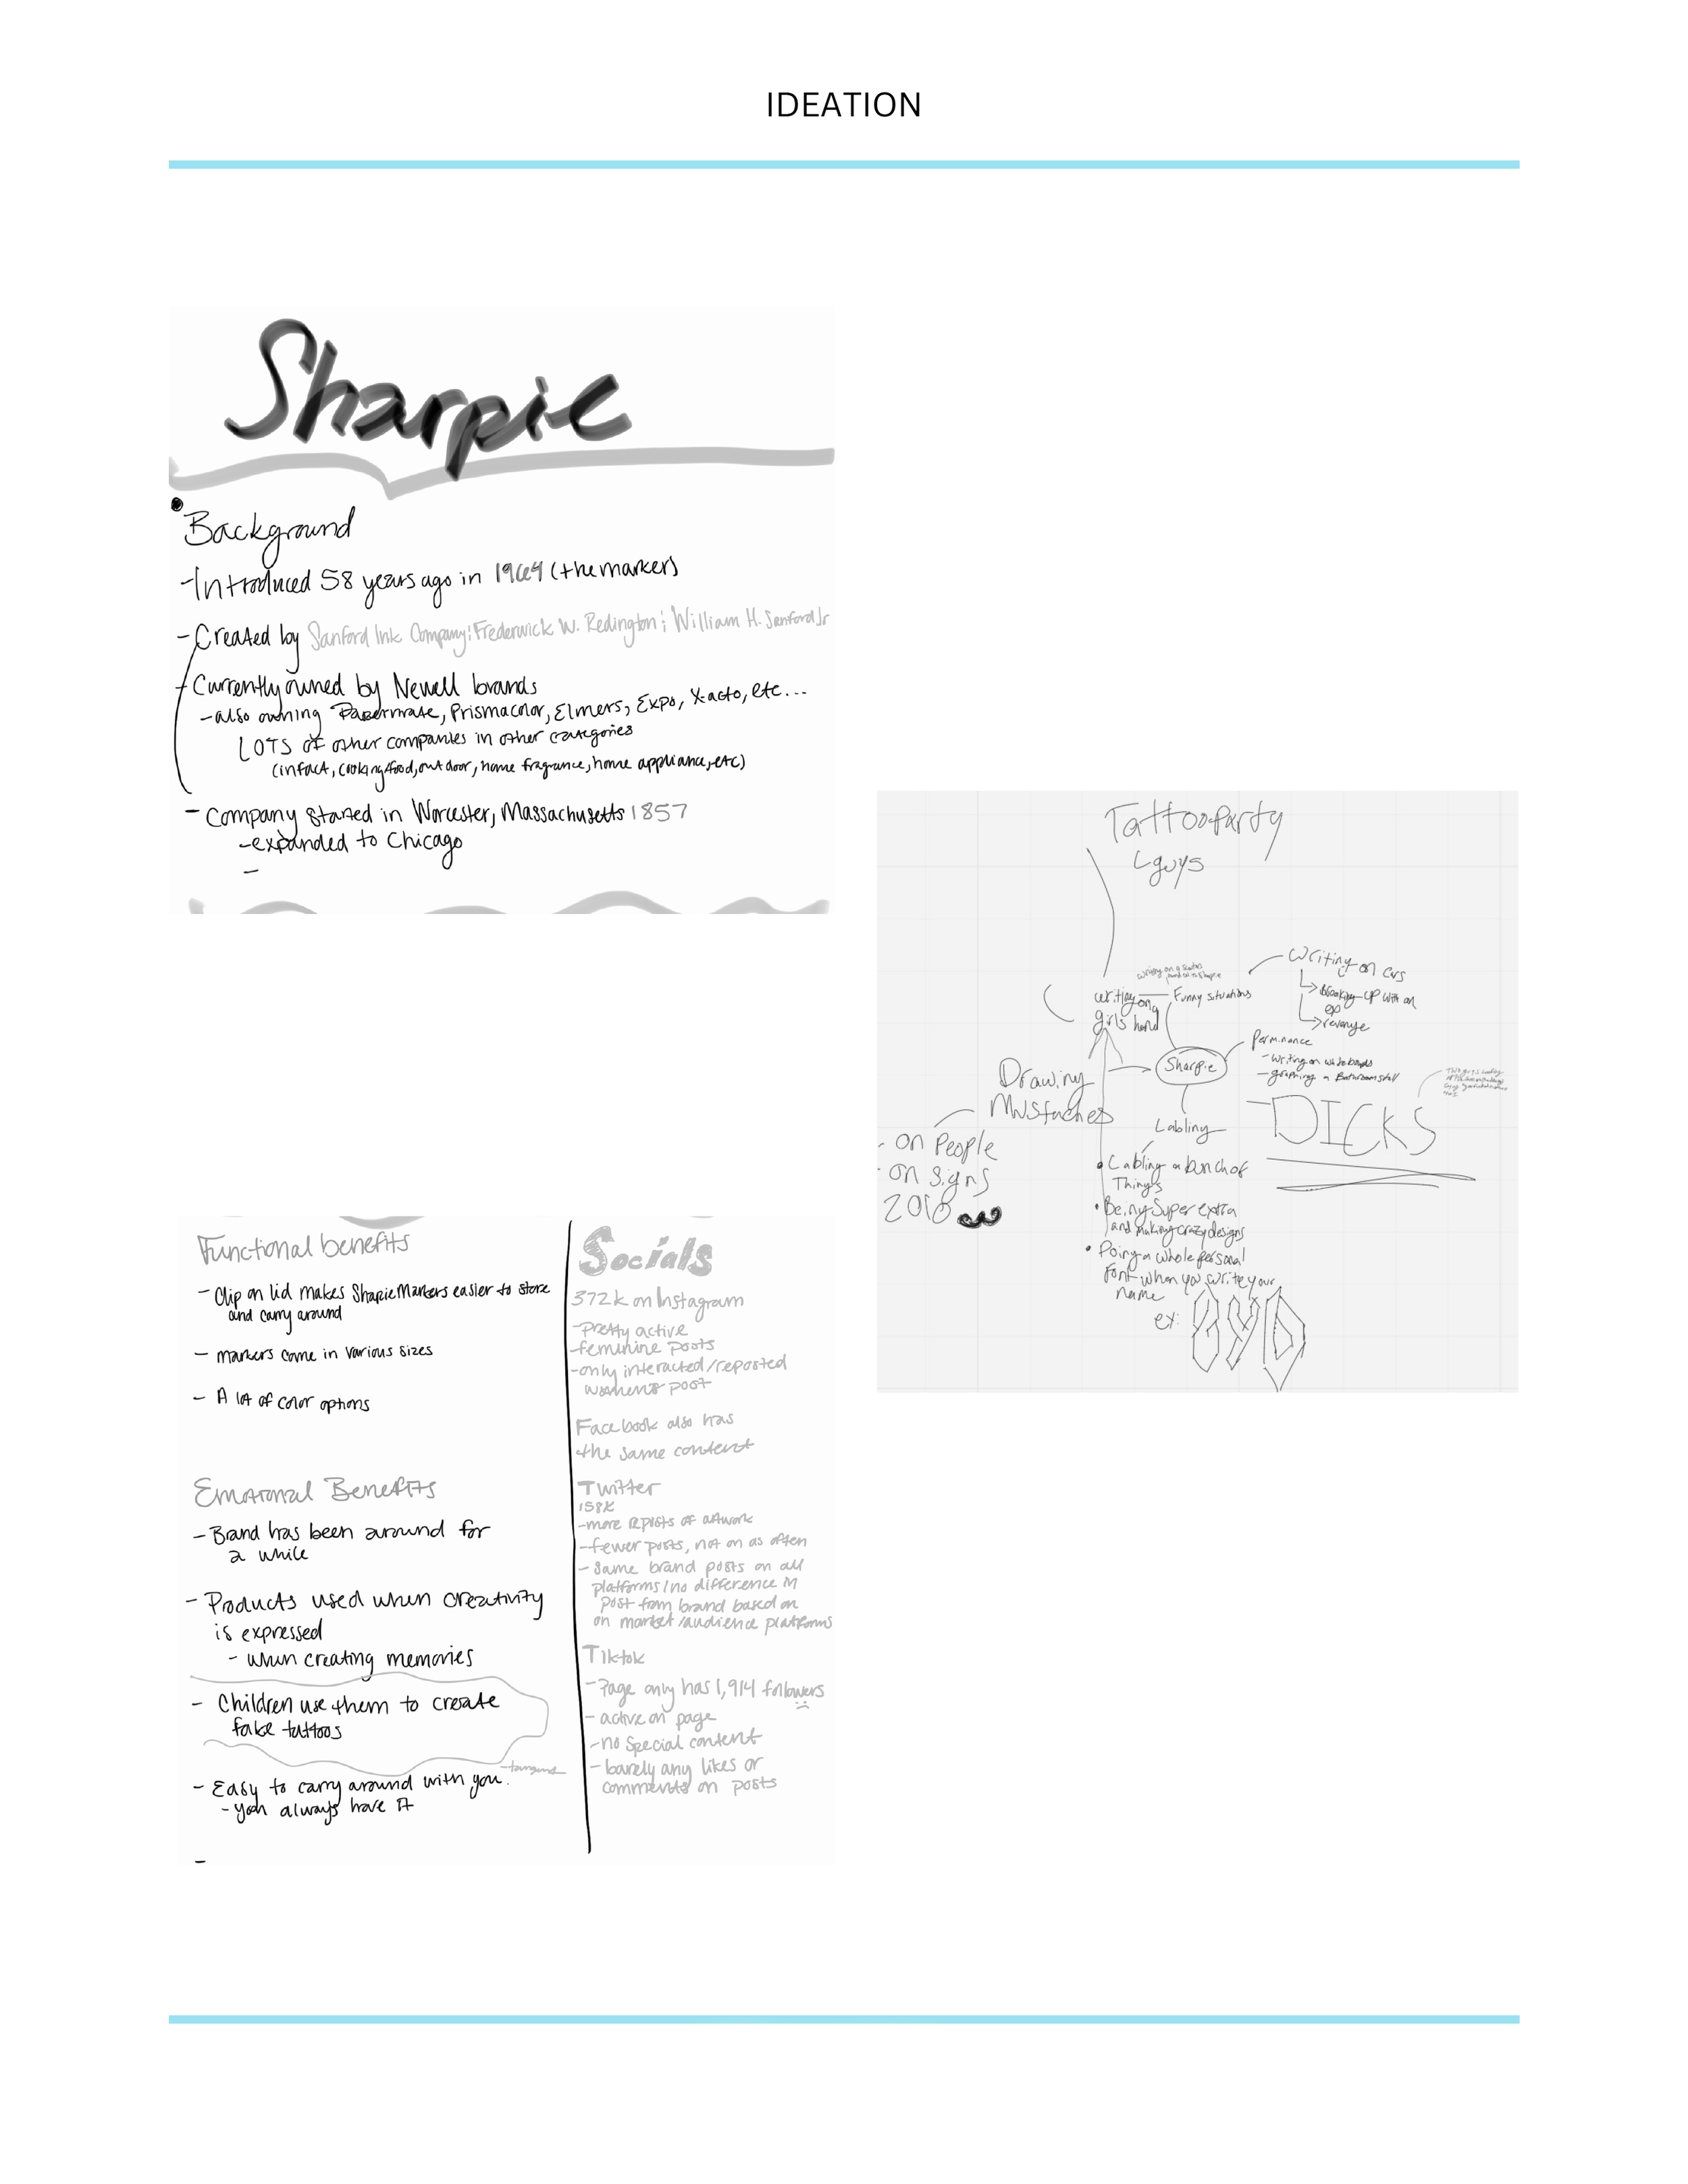 IDEATION
Sharpie
Background
- Introduced 58 years ago in 1964 (the markers)
- Created by Sanford Ink Company; Frederwick W. Redington; William H. Sanford Jr
- Currently owned by Newell brands
- also owning Papermate, Prismacolor, Elmers, Expo, X-acto, etc...
LOTS of other companies in other categories
(infact, cooking/food, outdoor, home fragrance, home appliance, etc)
- Company started in Worcester, Massachusetts 1857
- expanded to Chicago
-
Functional benefits
- Clip on lid makes Sharpie Markers easier to store
and carry around
- markers come in various sizes
- A lot of color options
Emotional Benefits
- Brand has been around for
a while
- Products used when creativity
is expressed
- when creating memories
- Children use them to create
fake tattoos
- Easy to carry around with you.
- you always have it
-
Socials
372k on Instagram
- Pretty active
- feminine posts
- only interacted/reposted
womens post
Facebook also has
the same content
Twitter
158k
- more reposts of artwork
- fewer posts, not on as often
- Same brand posts on all
platforms/no difference in
post from brand based on
on market/audience platforms
Tiktok
- Page only has 1,914 followers
- active on page
- no special content
- barely any likes or
comments on posts
Tattoo Party
guys
writing on
girls hand
Funny situations
Writing on cars
breaking up with an
ex
revenge
Sharpie
Perminance
- Writing on whiteboards
- graphing a Bathroom stall
- DICKS
Drawing
Mustaches
- on People
- on signs
2010
Labling
• Labling a bunch of
Things
• Being Super extra
and making crazy designs
• Doing a whole personal
font when you write your
name
ex: GYD